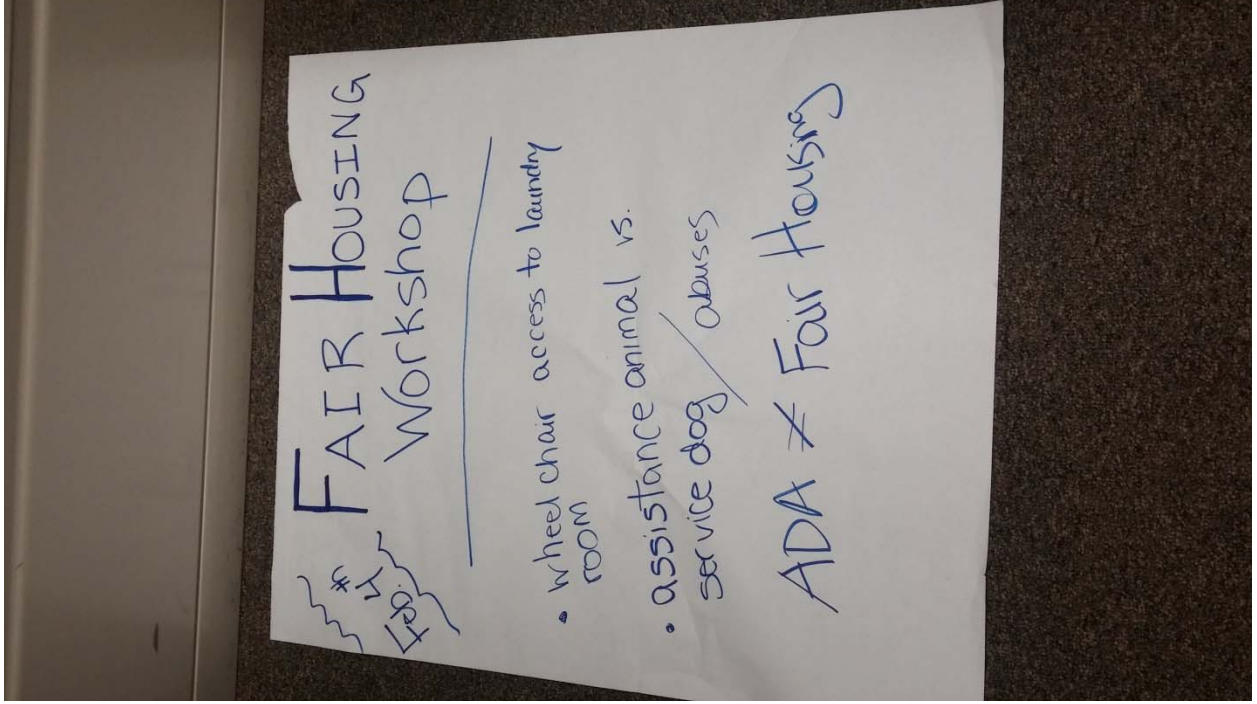 FAIR HOUSING
Workshop
Feb.
4th
• wheel chair access to laundry
room
• assistance animal vs.
service dog / abuses
ADA ≠ Fair Housing